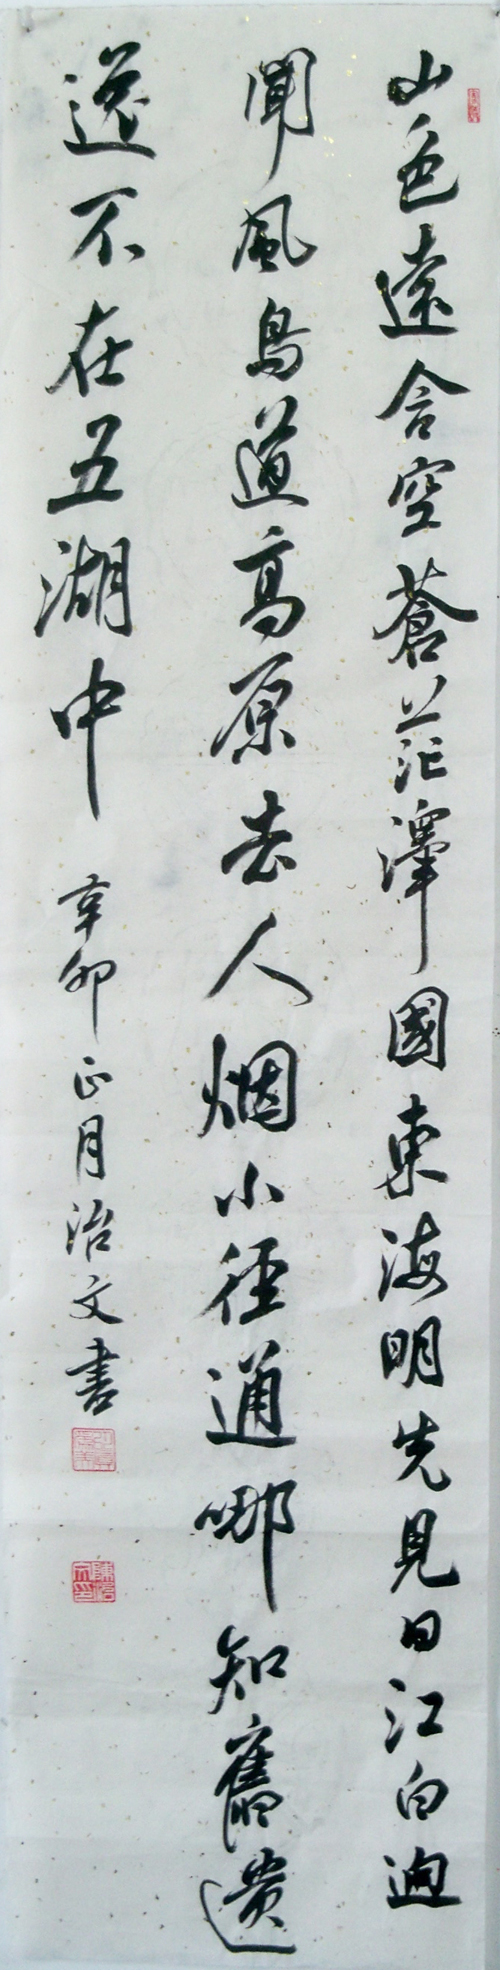 山色遠含空蒼茫澤國東海明先見日江白迥
聞風鳥道高原去人烟小徑通哪知舊遺
逸不在五湖中
辛卯正月治文書